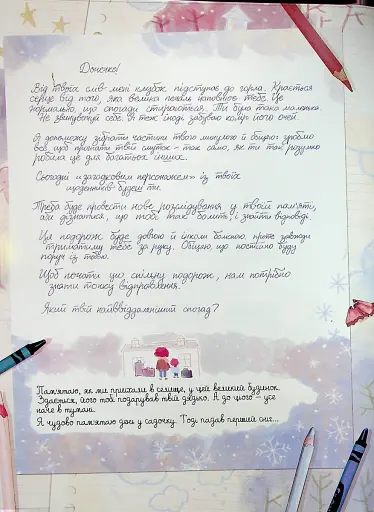 Донечко!
Від твоїх слів мені клубок підступає до горла. Крається
серце від того, яка велика печаль наповнює тебе. Це
нормально, що спогади стираються. Ти була така малешка.
Не звинувачуй себе. Я теж іноді забуваю колір його очей.
Я допоможу зібрати частини твого минулого й обіцяю: зроблю
все, щоб прогнати твій смуток – так само, як ти так радо
робила це для багатьох інших.
Сьогодні «загадковим персонажем» із твоїх
щоденників будеш ти.
Треба буде провести нове розслідування у твоїй пам'яті,
аби дізнатися, що тобі так болить, і знайти відповіді.
Ця подорож буде довгою й інколи болісною, проте завжди
триматиму тебе за руку. Обіцяю, що постійно буду
поруч із тобою.
Щоб почати цю спільну подорож, нам потрібно
знати точку відправлення.
Який твій найвіддаленіший спогад?
Пам'ятаю, як ми приїхали в селище, у цей великий будинок.
Здається, його тобі подарував твій дядько. А до цього – усе
наче в тумані.
Я чудово пам'ятаю день у садочку. Тоді падав перший сніг...